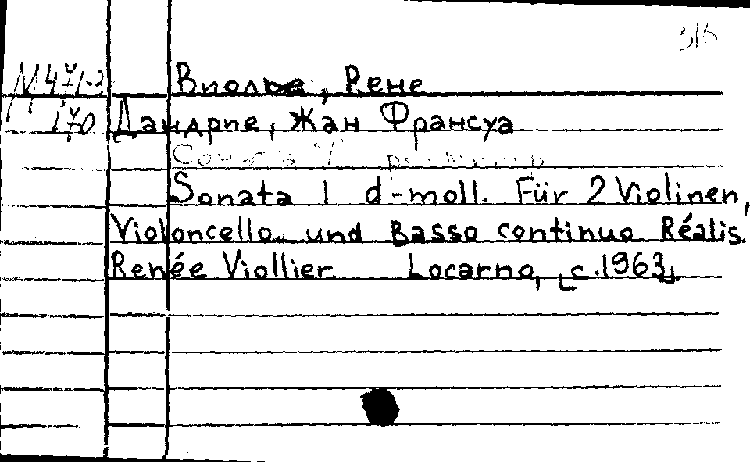 Виолье, Рене
Дандрие, Жан Франсуа
Sonata 1 d-moll. Für 2 Violinen,
Violoncello und Basso continuo Réalis.
Renée Viollier Locarno, [c.1963]